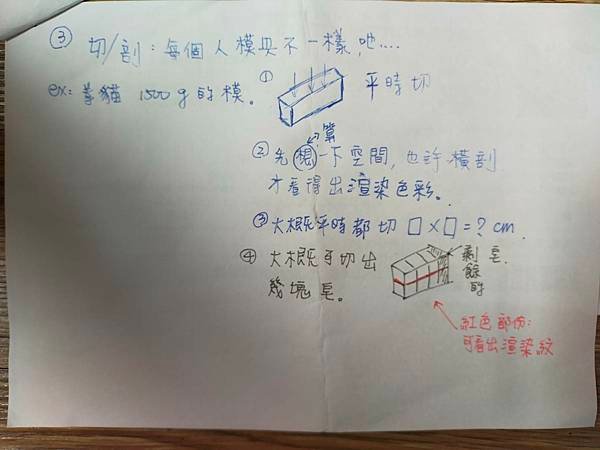 ③ 切/剖：每個人模具不一樣,吔....
ex: 養貓 1500g 的模。
① 平時切
② 先想一下空間, 也許橫剖
算
才看得出渲染色彩。
③ 大概平時都切 □×□=? cm.
④ 大概可切出
幾塊皂。
剩皂.
餘的
紅色部份:
可看出渲染紋